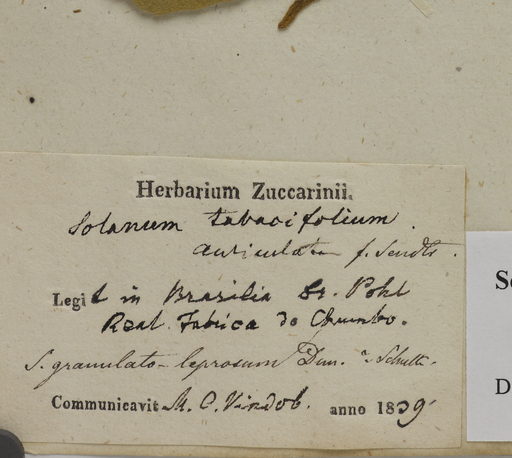 Herbarium Zuccarinii.
Solanum tabacifolium.
auriculatum f. Sendt.
Legit in Brasilia Dr. Pohl
Real Fabrica do Chumbo.
S. granulato-leprosum Dun.
Communicavit M. C. Vindob. anno 1839
S
D